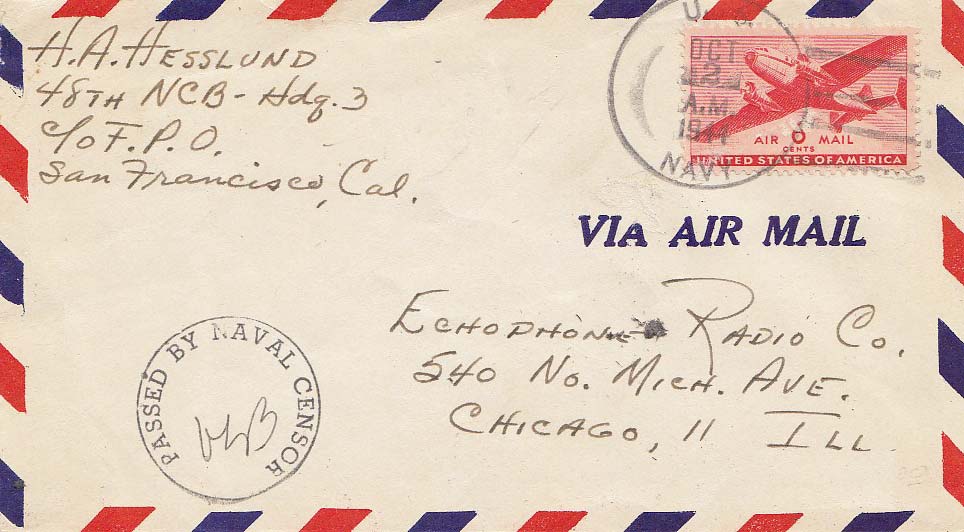 H.A. HESSLUND
48TH NCB - Hdq. 3
c/o F.P.O.
San Francisco, Cal.
U. S.
OCT
A.M.
1944
NAVY
AIR 6 MAIL
CENTS
UNITED STATES OF AMERICA
VIA AIR MAIL
ECHOPHONE RADIO CO.
540 NO. MICH. AVE.
CHICAGO, 11 ILL
PASSED BY NAVAL CENSOR